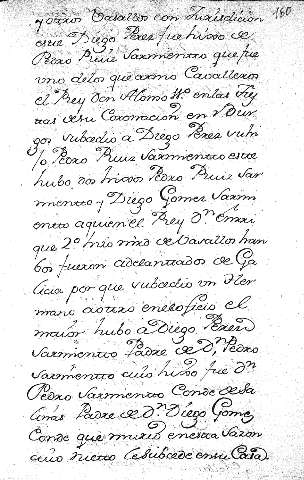 160
y otros Vasallos con Jurisdicion
este Diego Perez fue hixo de
Pedro Ruiz Sarmiento que fue
uno de los que armo Cavalleros
el Rey Don Alonso en las
de su Coronacion en Bur
gos subcedio a Diego Perez su hi
jo Pedro Ruiz Sarmiento este
hubo dos hixos Pedro Ruiz Sar
miento y Diego Gomez Sarm
iento a quien el Rey Dn enrri
que 2º hizo mrd de Vasallos ham
bos fueron adelantados de Ga
licia por que subcedio un Her
mano a otro en el oficio el
maior hubo a Diego Perez
Sarmiento Padre de Dn Pedro
Sarmiento cuio hixo fue Dn
Pedro Sarmiento Conde de Sa
linas Padre de Dn Diego Gomez
Conde que murio en esta Sazon
cuio nieto le subcede en su Casa